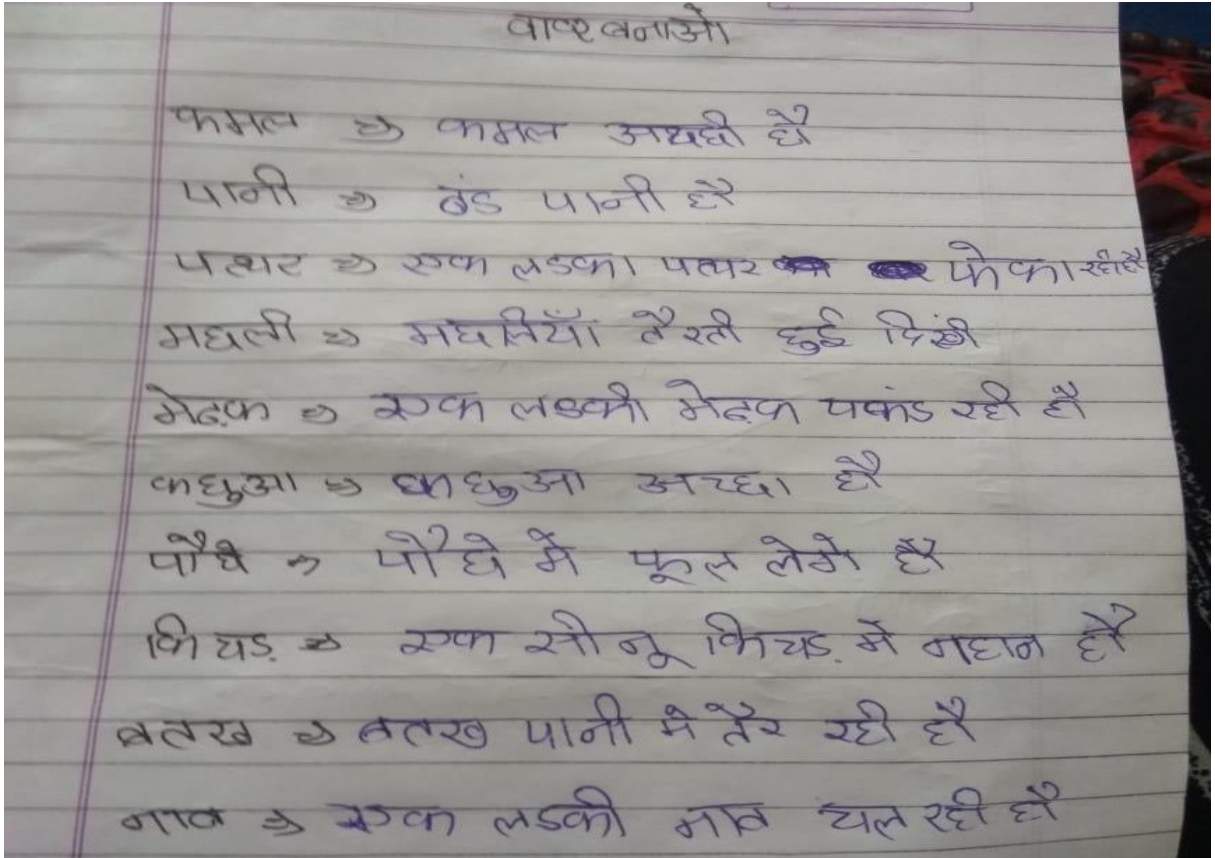 वाक्य बनाओ
कमल ⇒ कमल अच्छी है
पानी ⇒ ठंड पानी है
पत्थर ⇒ एक लडका पत्थर फेका रही है
मछली ⇒ मछलियाँ तैरती हुई दिखी
मेढ़क ⇒ एक लडकी मेढ़क पकंड रही है
कछुआ ⇒ कछुआ अच्छा है
पौधे ⇒ पौधे में फूल लेगे है
किचड़ ⇒ एक सोनू किचड़ में नहान है
बतख ⇒ बतख पानी मे तैर रही है
नाव ⇒ एक लडकी नाव चल रही है